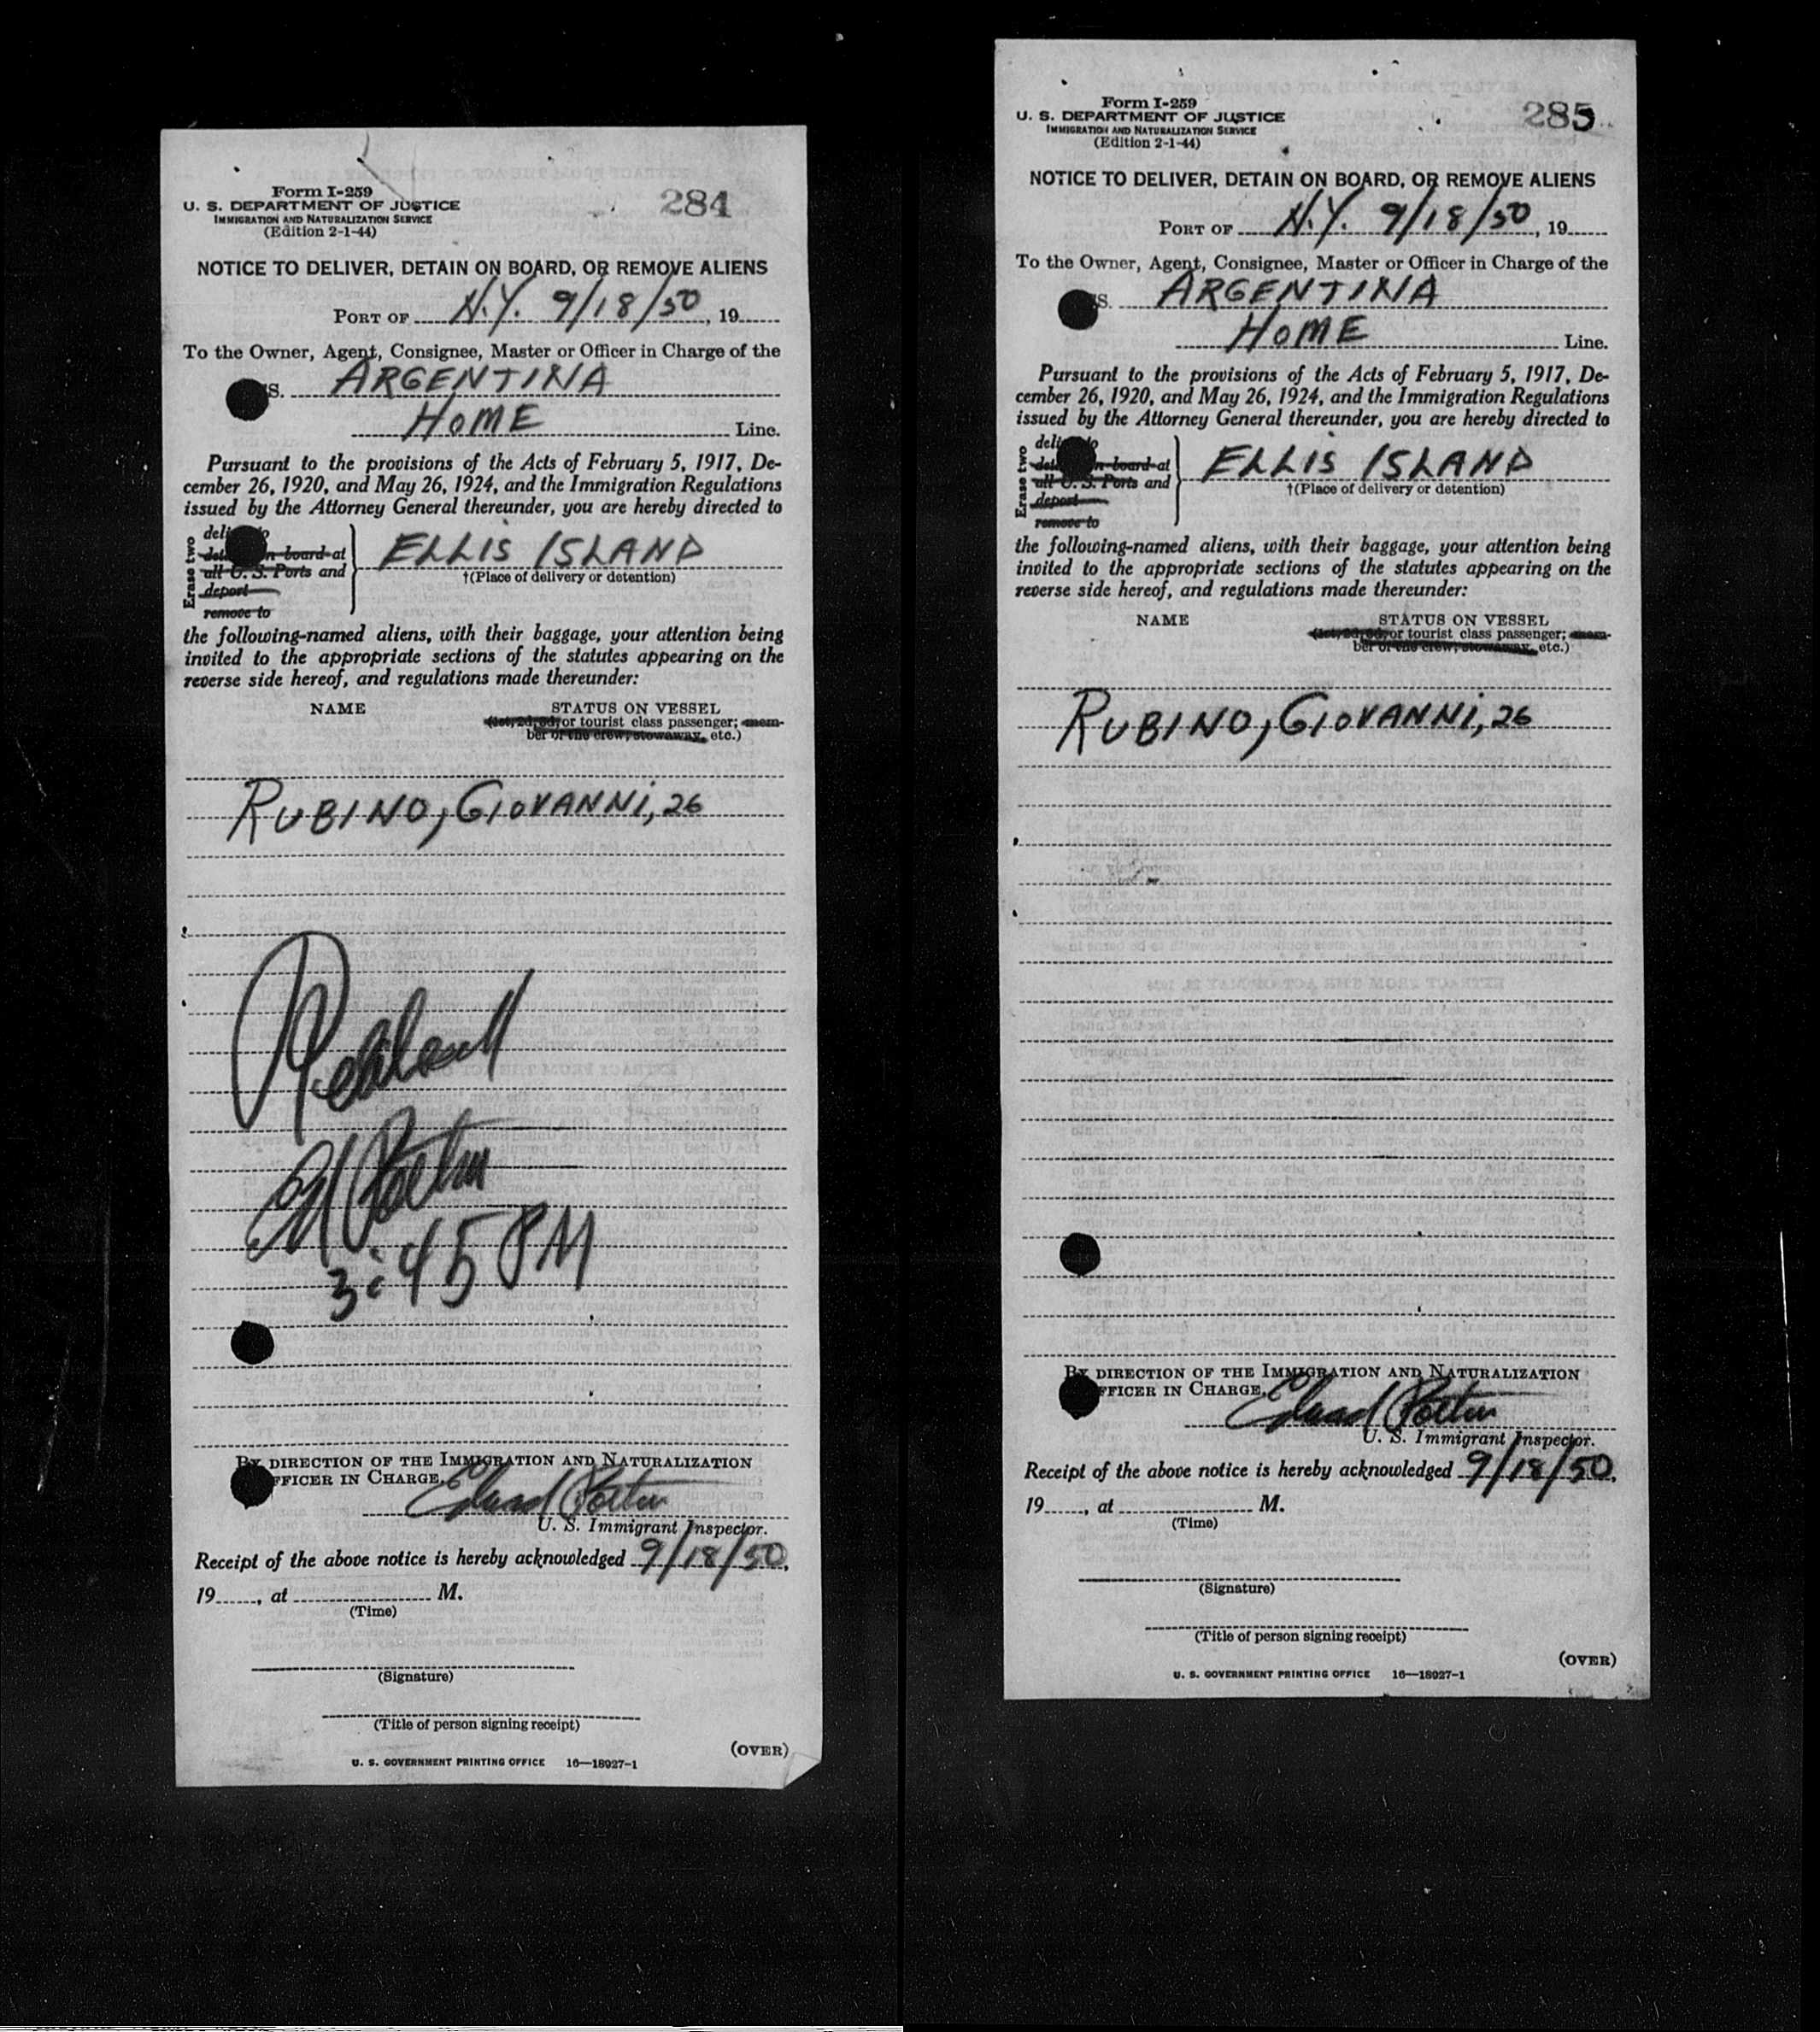 284
Form I-259
U. S. DEPARTMENT OF JUSTICE
IMMIGRATION AND NATURALIZATION SERVICE
(Edition 2-1-44)
NOTICE TO DELIVER, DETAIN ON BOARD, OR REMOVE ALIENS
PORT OF N.Y. 9/18/50, 19
To the Owner, Agent, Consignee, Master or Officer in Charge of the
S. ARGENTINA
HOME Line.
Pursuant to the provisions of the Acts of February 5, 1917, De-
cember 26, 1920, and May 26, 1924, and the Immigration Regulations
issued by the Attorney General thereunder, you are hereby directed to
Erase two
deli to
det n board at
all U. S. Ports and
deport
remove to
ELLIS ISLAND
†(Place of delivery or detention)
the following-named aliens, with their baggage, your attention being
invited to the appropriate sections of the statutes appearing on the
reverse side hereof, and regulations made thereunder:
NAME STATUS ON VESSEL
(1st, 2d, 3d, or tourist class passenger; mem-
ber of the crew, stowaway, etc.)
RUBINO, GIOVANNI, 26
3:45 PM
BY DIRECTION OF THE IMMIGRATION AND NATURALIZATION
FFICER IN CHARGE,
U. S. Immigrant Inspector.
Receipt of the above notice is hereby acknowledged 9/18/50,
19, at M.
(Time)
(Signature)
(Title of person signing receipt)
(OVER)
U. S. GOVERNMENT PRINTING OFFICE 16—18927-1
285
Form I-259
U. S. DEPARTMENT OF JUSTICE
IMMIGRATION AND NATURALIZATION SERVICE
(Edition 2-1-44)
NOTICE TO DELIVER, DETAIN ON BOARD, OR REMOVE ALIENS
PORT OF N.Y. 9/18/50, 19
To the Owner, Agent, Consignee, Master or Officer in Charge of the
S. ARGENTINA
HOME Line.
Pursuant to the provisions of the Acts of February 5, 1917, De-
cember 26, 1920, and May 26, 1924, and the Immigration Regulations
issued by the Attorney General thereunder, you are hereby directed to
Erase two
deli to
det n board at
all U. S. Ports and
deport
remove to
ELLIS ISLAND
†(Place of delivery or detention)
the following-named aliens, with their baggage, your attention being
invited to the appropriate sections of the statutes appearing on the
reverse side hereof, and regulations made thereunder:
NAME STATUS ON VESSEL
(1st, 2d, 3d, or tourist class passenger; mem-
ber of the crew, stowaway, etc.)
RUBINO, GIOVANNI, 26
BY DIRECTION OF THE IMMIGRATION AND NATURALIZATION
FFICER IN CHARGE,
U. S. Immigrant Inspector.
Receipt of the above notice is hereby acknowledged 9/18/50,
19, at M.
(Time)
(Signature)
(Title of person signing receipt)
(OVER)
U. S. GOVERNMENT PRINTING OFFICE 16—18927-1